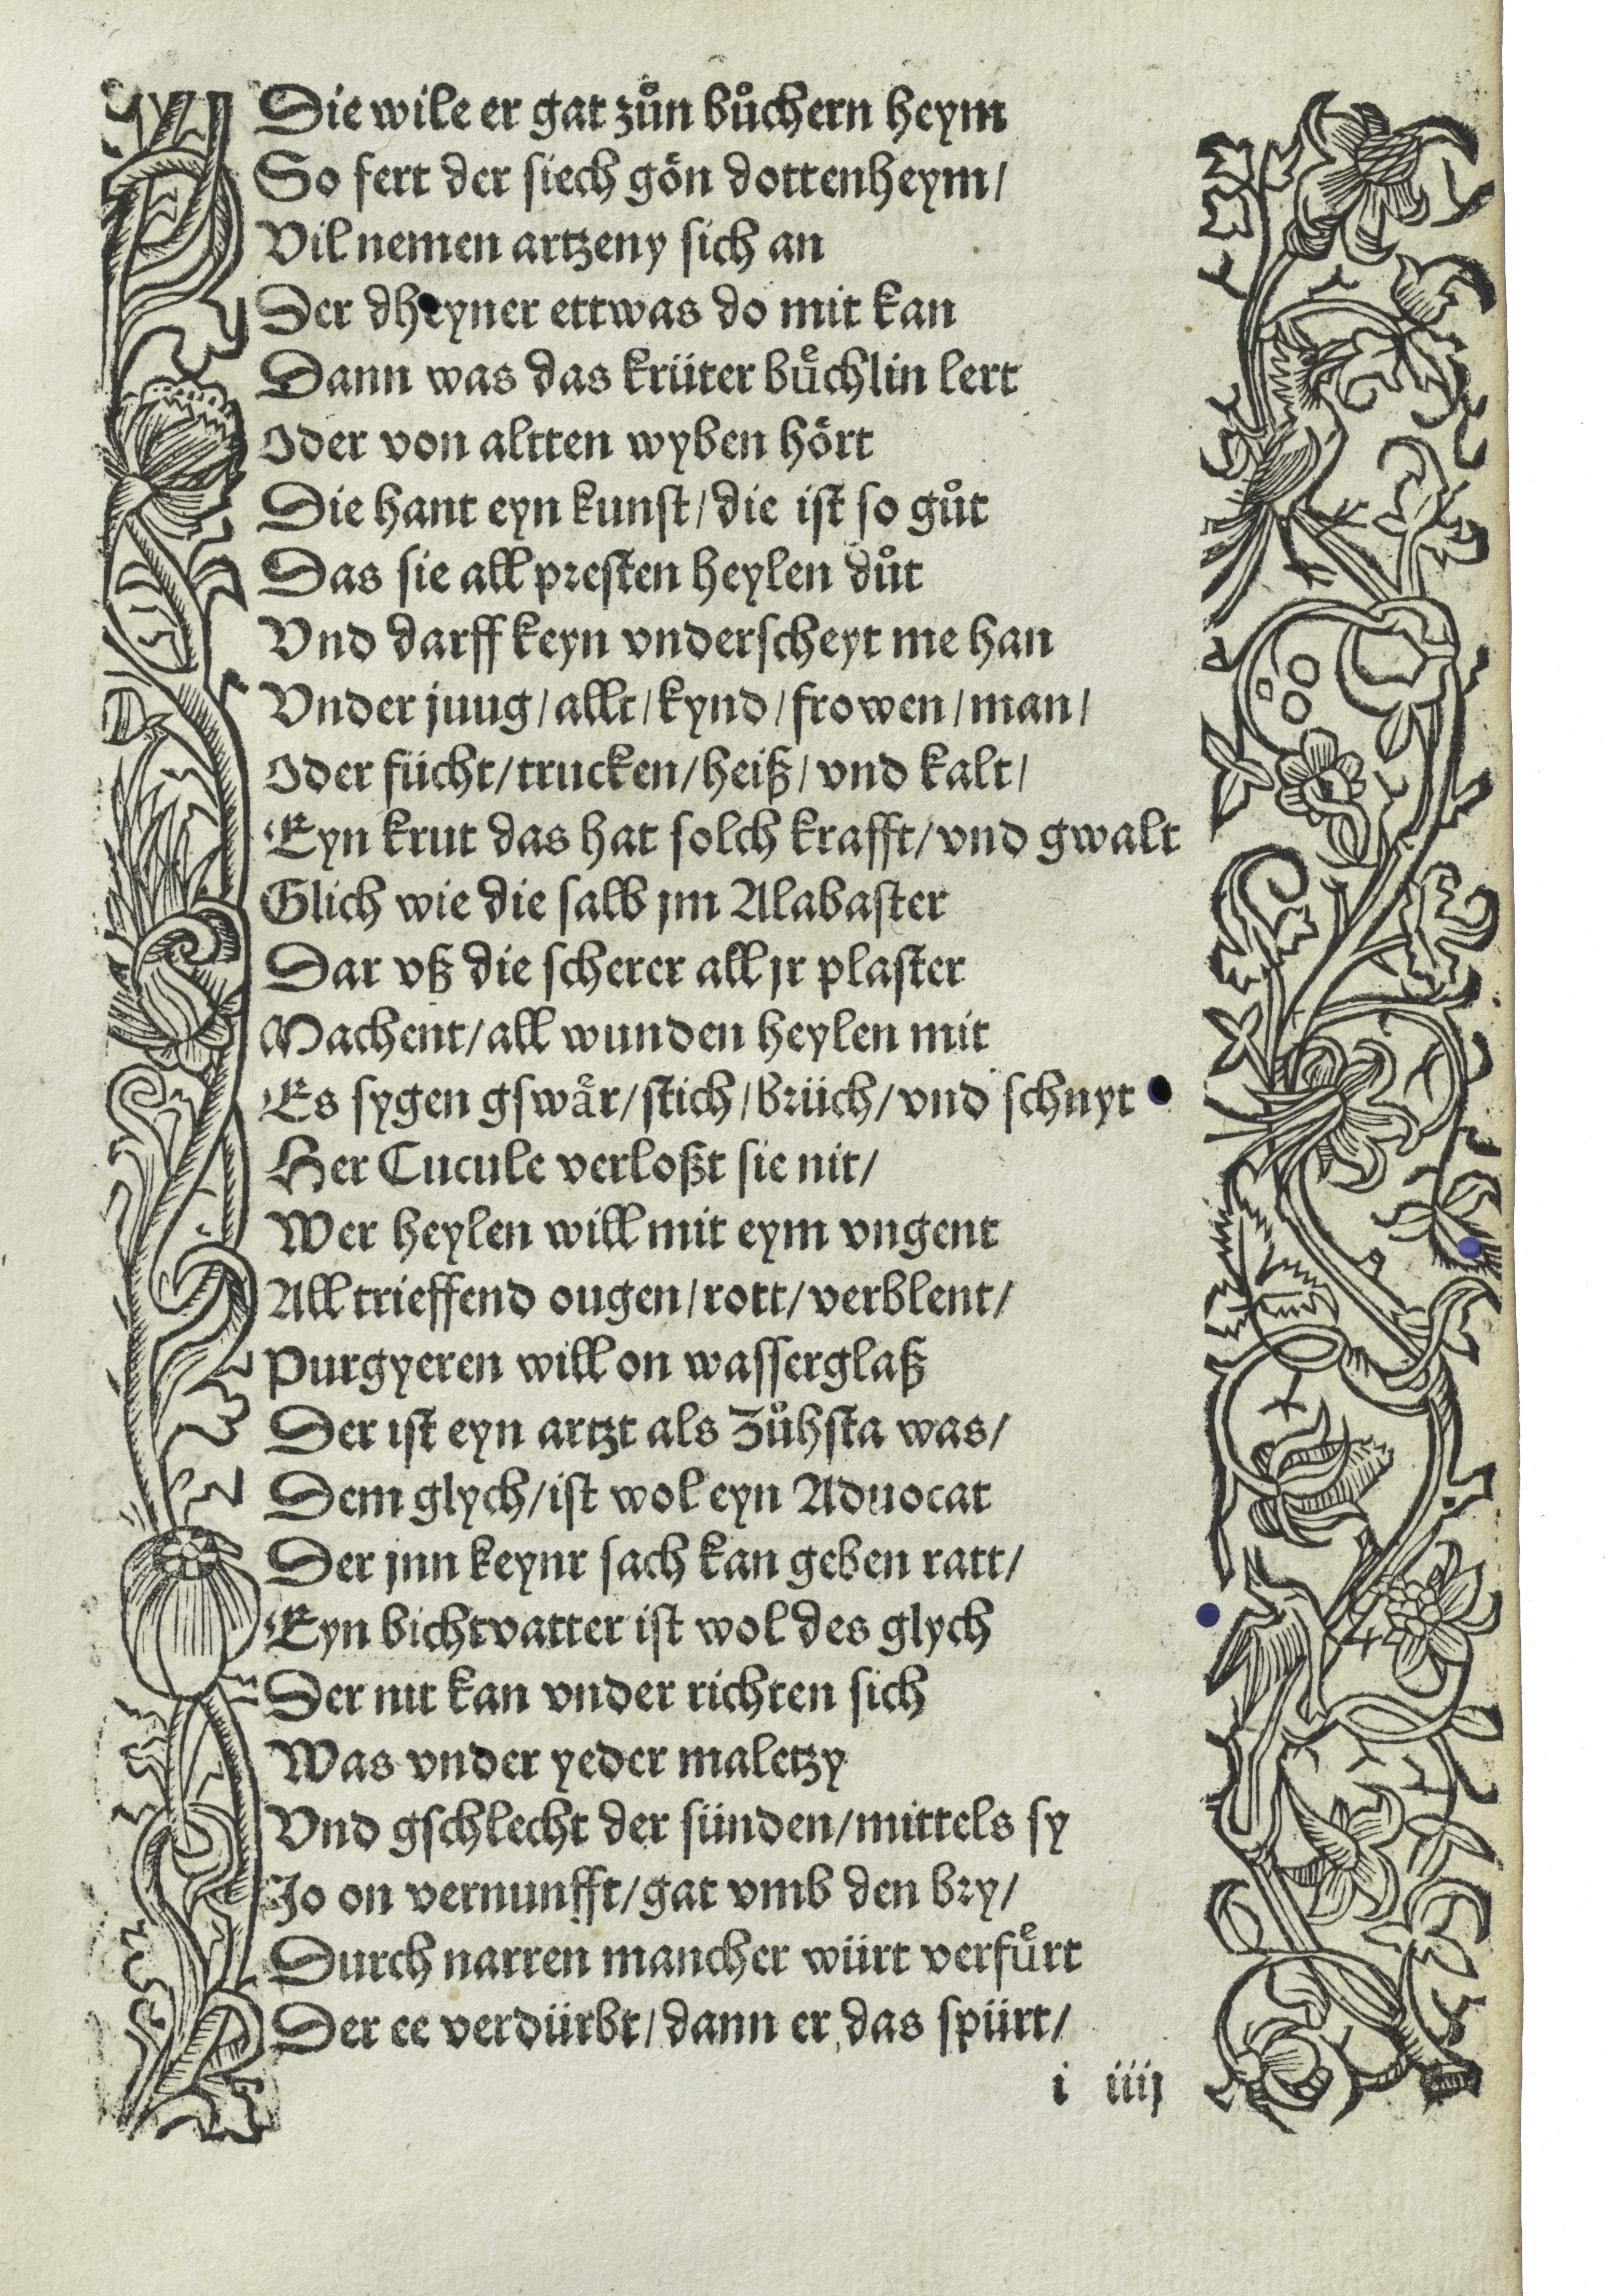 Die wile er gat zůn bůchern heym
So fert der siech gön dottenheym/
Vil nemen artzeny sich an
Der dheyner ettwas do mit kan
Dann was das krüter buͤchlin lert
Oder von altten wyben hört
Die hant eyn kunst/die ist so gůt
Das sie all presten heylen důt
Vnd darff keyn vnderscheyt me han
Vnder juug/allt/kynd/frowen/man/
Oder fücht/trucken/heiß/vnd kalt/
Eyn krut das hat solch krafft/vnd gwalt
Glich wie die salb jm Alabaster
Dar vß die scherer all jr plaster
Machent/all wunden heylen mit
Es sygen gswaͤr/stich/brüch/vnd schnyt
Her Cucule verloßt sie nit/
Wer heylen will mit eym vngent
All trieffend ougen/rott/verblent/
Purgyeren will on wasserglaß
Der ist eyn artzt als Zůhsta was/
Dem glych/ist wol eyn Aduocat
Der jnn keynr sach kan geben ratt/
Eyn bichtvatter ist wol des glych
Der nit kan vnder richten sich
Was vnder yeder maletzy
Vnd gschlecht der sünden/mittels sy
Jo on vernunfft/gat vmb den bry/
Durch narren mancher würt verfuͤrt
Der ee verdürbt/dann er das spürt/
i iiij